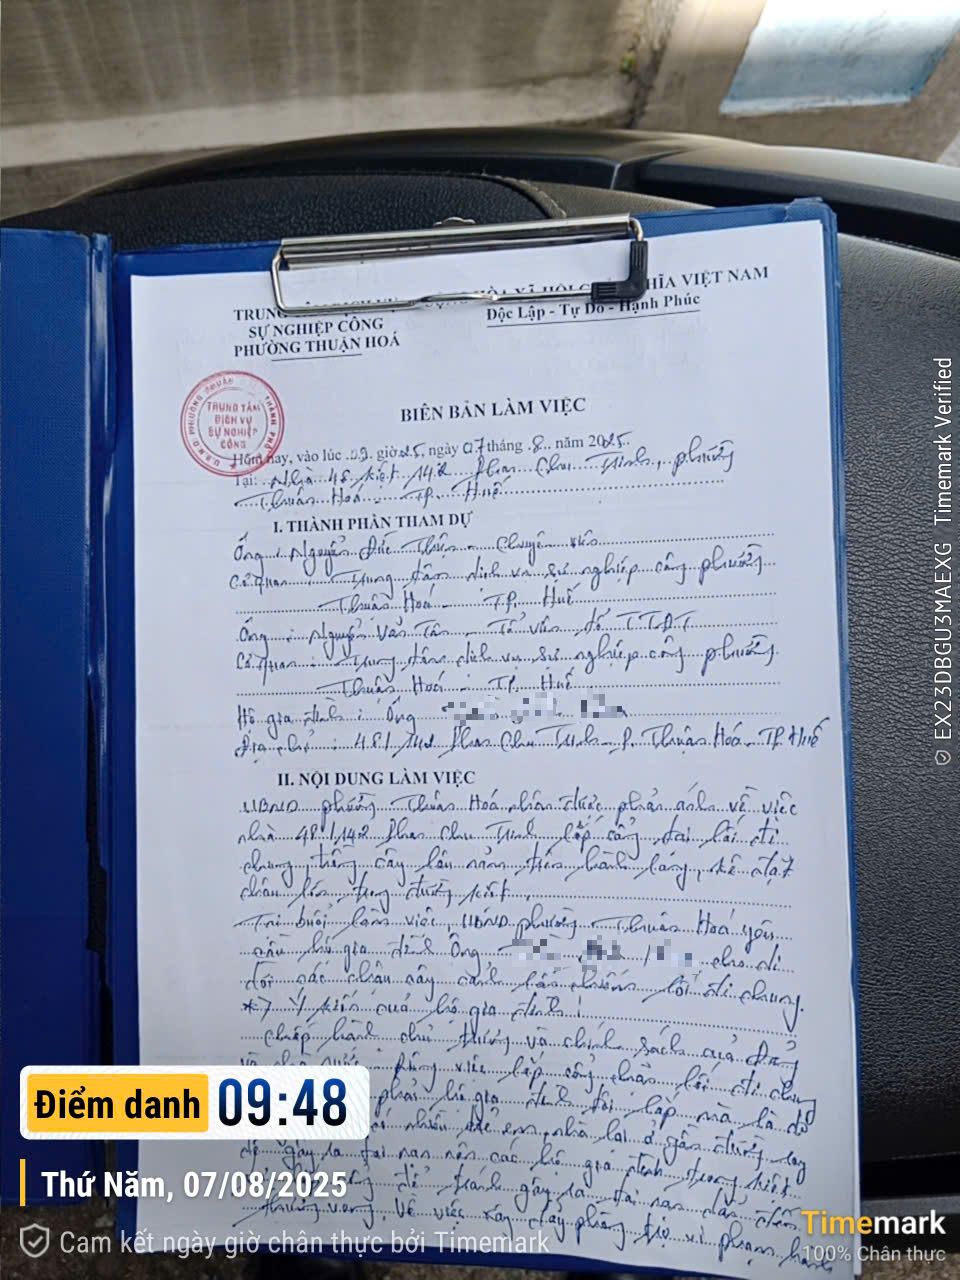 TRUNG
HÒA XÃ HỘI CHỦ NGHĨA VIỆT NAM
SỰ NGHIỆP CÔNG
Độc Lập - Tự Do - Hạnh Phúc
PHƯỜNG THUẬN HOÁ
TRUNG TÂM
DỊCH VỤ
SỰ NGHIỆP
CÔNG
BIÊN BẢN LÀM VIỆC
Hôm nay, vào lúc 09 giờ 25, ngày 07 tháng 8 năm 2025
Tại: Nhà 48 kiệt 142 Phan Chu Trinh, phường
Thuận Hoá - TP. Huế
I. THÀNH PHẦN THAM DỰ
Ông : Nguyễn Đức Thuận - Chuyên viên
Cơ quan : Trung tâm dịch vụ sự nghiệp công phường
Thuận Hoá - TP. Huế
Ông : Nguyễn Văn Tân - Tổ viên tổ TTĐT
Cơ quan : Trung tâm dịch vụ sự nghiệp công phường
Thuận Hoá - TP. Huế
Hộ gia đình : Ông
Địa chỉ : 48/142 Phan Chu Trinh - P. Thuận Hoá - TP Huế
II. NỘI DUNG LÀM VIỆC
UBND phường Thuận Hoá nhận được phản ánh về việc
nhà 48/142 Phan Chu Trinh lắp cổng tại lối đi
chung, trồng cây lâu năm trên hành lang, kê đặt
chậu lớn trong đường kiệt.
Tại buổi làm việc, UBND phường Thuận Hoá yêu
cầu hộ gia đình Ông cho di
dời các chậu cây cảnh lấn chiếm lối đi chung.
* Ý kiến của hộ gia đình :
chấp hành chủ trương và chính sách của Đảng
việc lắp cổng chắn lối đi chung
phải hộ gia đình tôi lắp mà là do
nhiều trẻ em, nhà lại ở gần đường ray
dễ gây ra tai nạn nên các hộ gia đình trong kiệt
để tránh gây ra tai nạn dẫn đến
thương vong. Về việc xây dãy phòng trọ vi phạm hành
Điểm danh 09:48
Thứ Năm, 07/08/2025
Cam kết ngày giờ chân thực bởi Timemark
Timemark
100% Chân thực
EX23DBGU3MAEXG Timemark Verified